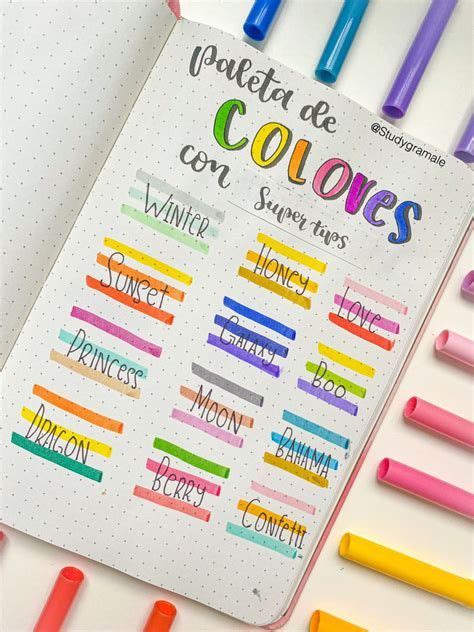 Paleta de
COLORES
con Super tips
@Studygramale
WINTER
HONEY
LOVE
SUNSET
GALAXY
BOO
PRINCESS
MOON
BAHAMA
DRAGON
BERRY
CONFETTI